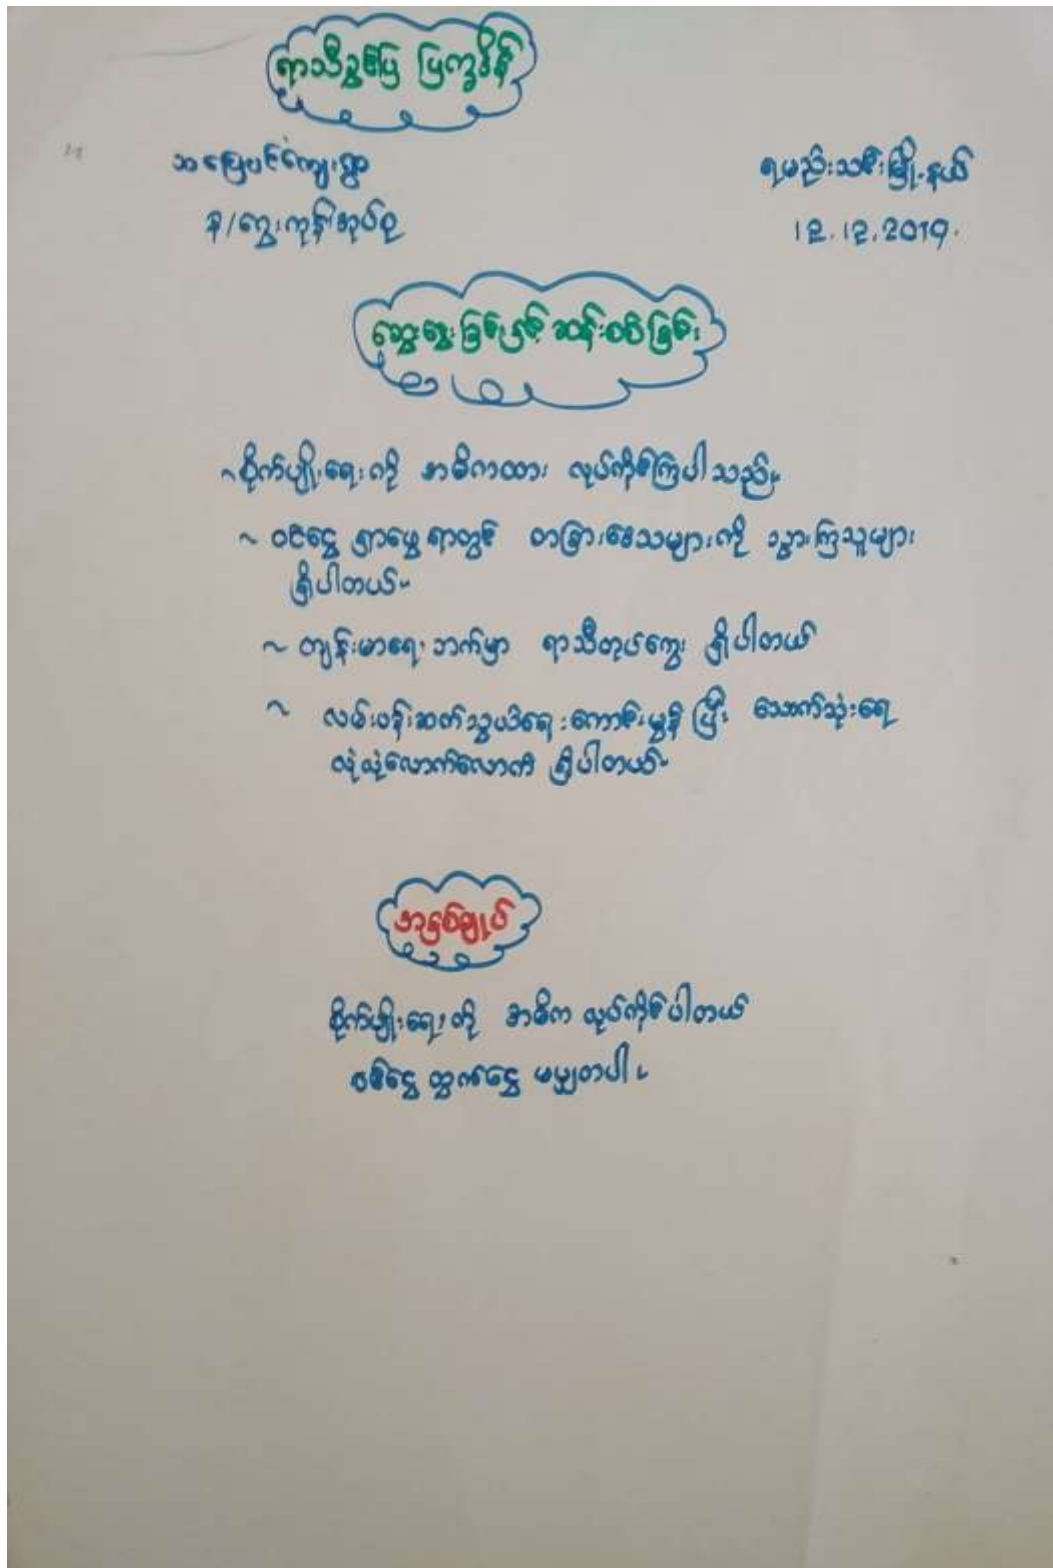 ရာသီခွင်ပြ ပြက္ခဒိန်
သပြေပင်ကျေးရွာ ရမည်းသင်းမြို့နယ်
န/ကွေးကုန်းအုပ်စု 12.12.2019.
ဆွေးနွေးခြင်းနှင့် ဆန်းစစ်ခြင်း
~ စိုက်ပျိုးရေးကို အဓိကထား လုပ်ကိုင်ကြပါသည်။
~ ဝင်ငွေ ရှာဖွေရာတွင် တခြားဒေသများကို သွားကြသူများ
ရှိပါတယ်။
~ ကျန်းမာရေးဘက်မှာ ရာသီတုပ်ကွေး ရှိပါတယ်
~ လမ်းပန်းဆက်သွယ်ရေးကောင်းမွန်ပြီး သောက်သုံးရေ
လုံလုံလောက်လောက် ရှိပါတယ်။
အနှစ်ချုပ်
စိုက်ပျိုးရေးကို အဓိက လုပ်ကိုင်ပါတယ်
ဝင်ငွေ ထွက်ငွေ မမျှတပါ။